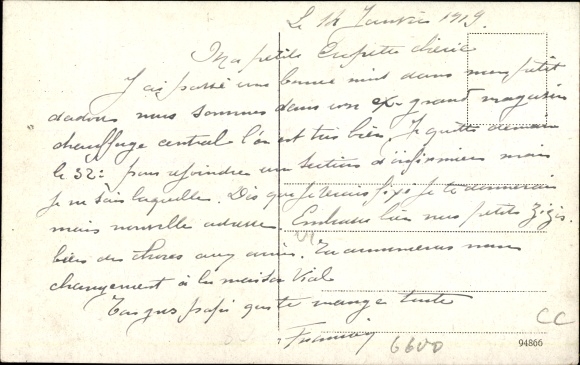 Le 14 Janvier 1919.
Ma petite chérie
J'ai passé une bonne nuit dans mon petit
nous sommes dans un ex-grand magasin
chauffage central l'on est très bien. Je quitte demain
le 32e pour rejoindre un section d'infirmiers mais
je ne sais laquelle. Dès que je serai fixé je te donnerai
mais nouvelle adresse. Embrasse bien nos petits Zizis.
bien des choses aux amis. Tu annonceras mon
changement à la maison Vial
Ton gros papa qui te mange toute
6600
CC
94866